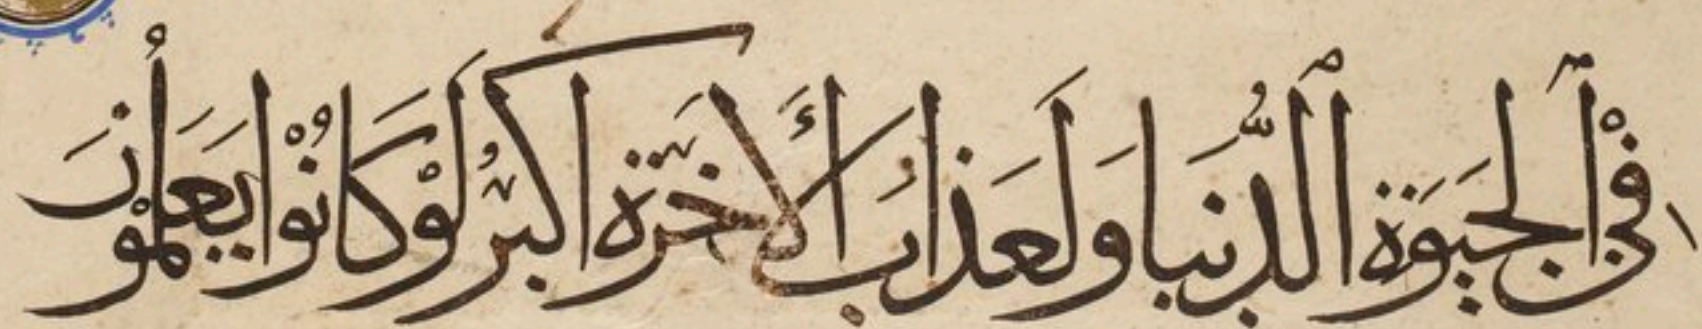 فِى ٱلْحَيَوٰةِ ٱلدُّنْيَا وَلَعَذَابُ ٱلْأَخِرَةِ أَكْبَرُ لَوْ كَانُوْا يَعْلَمُوْنَ